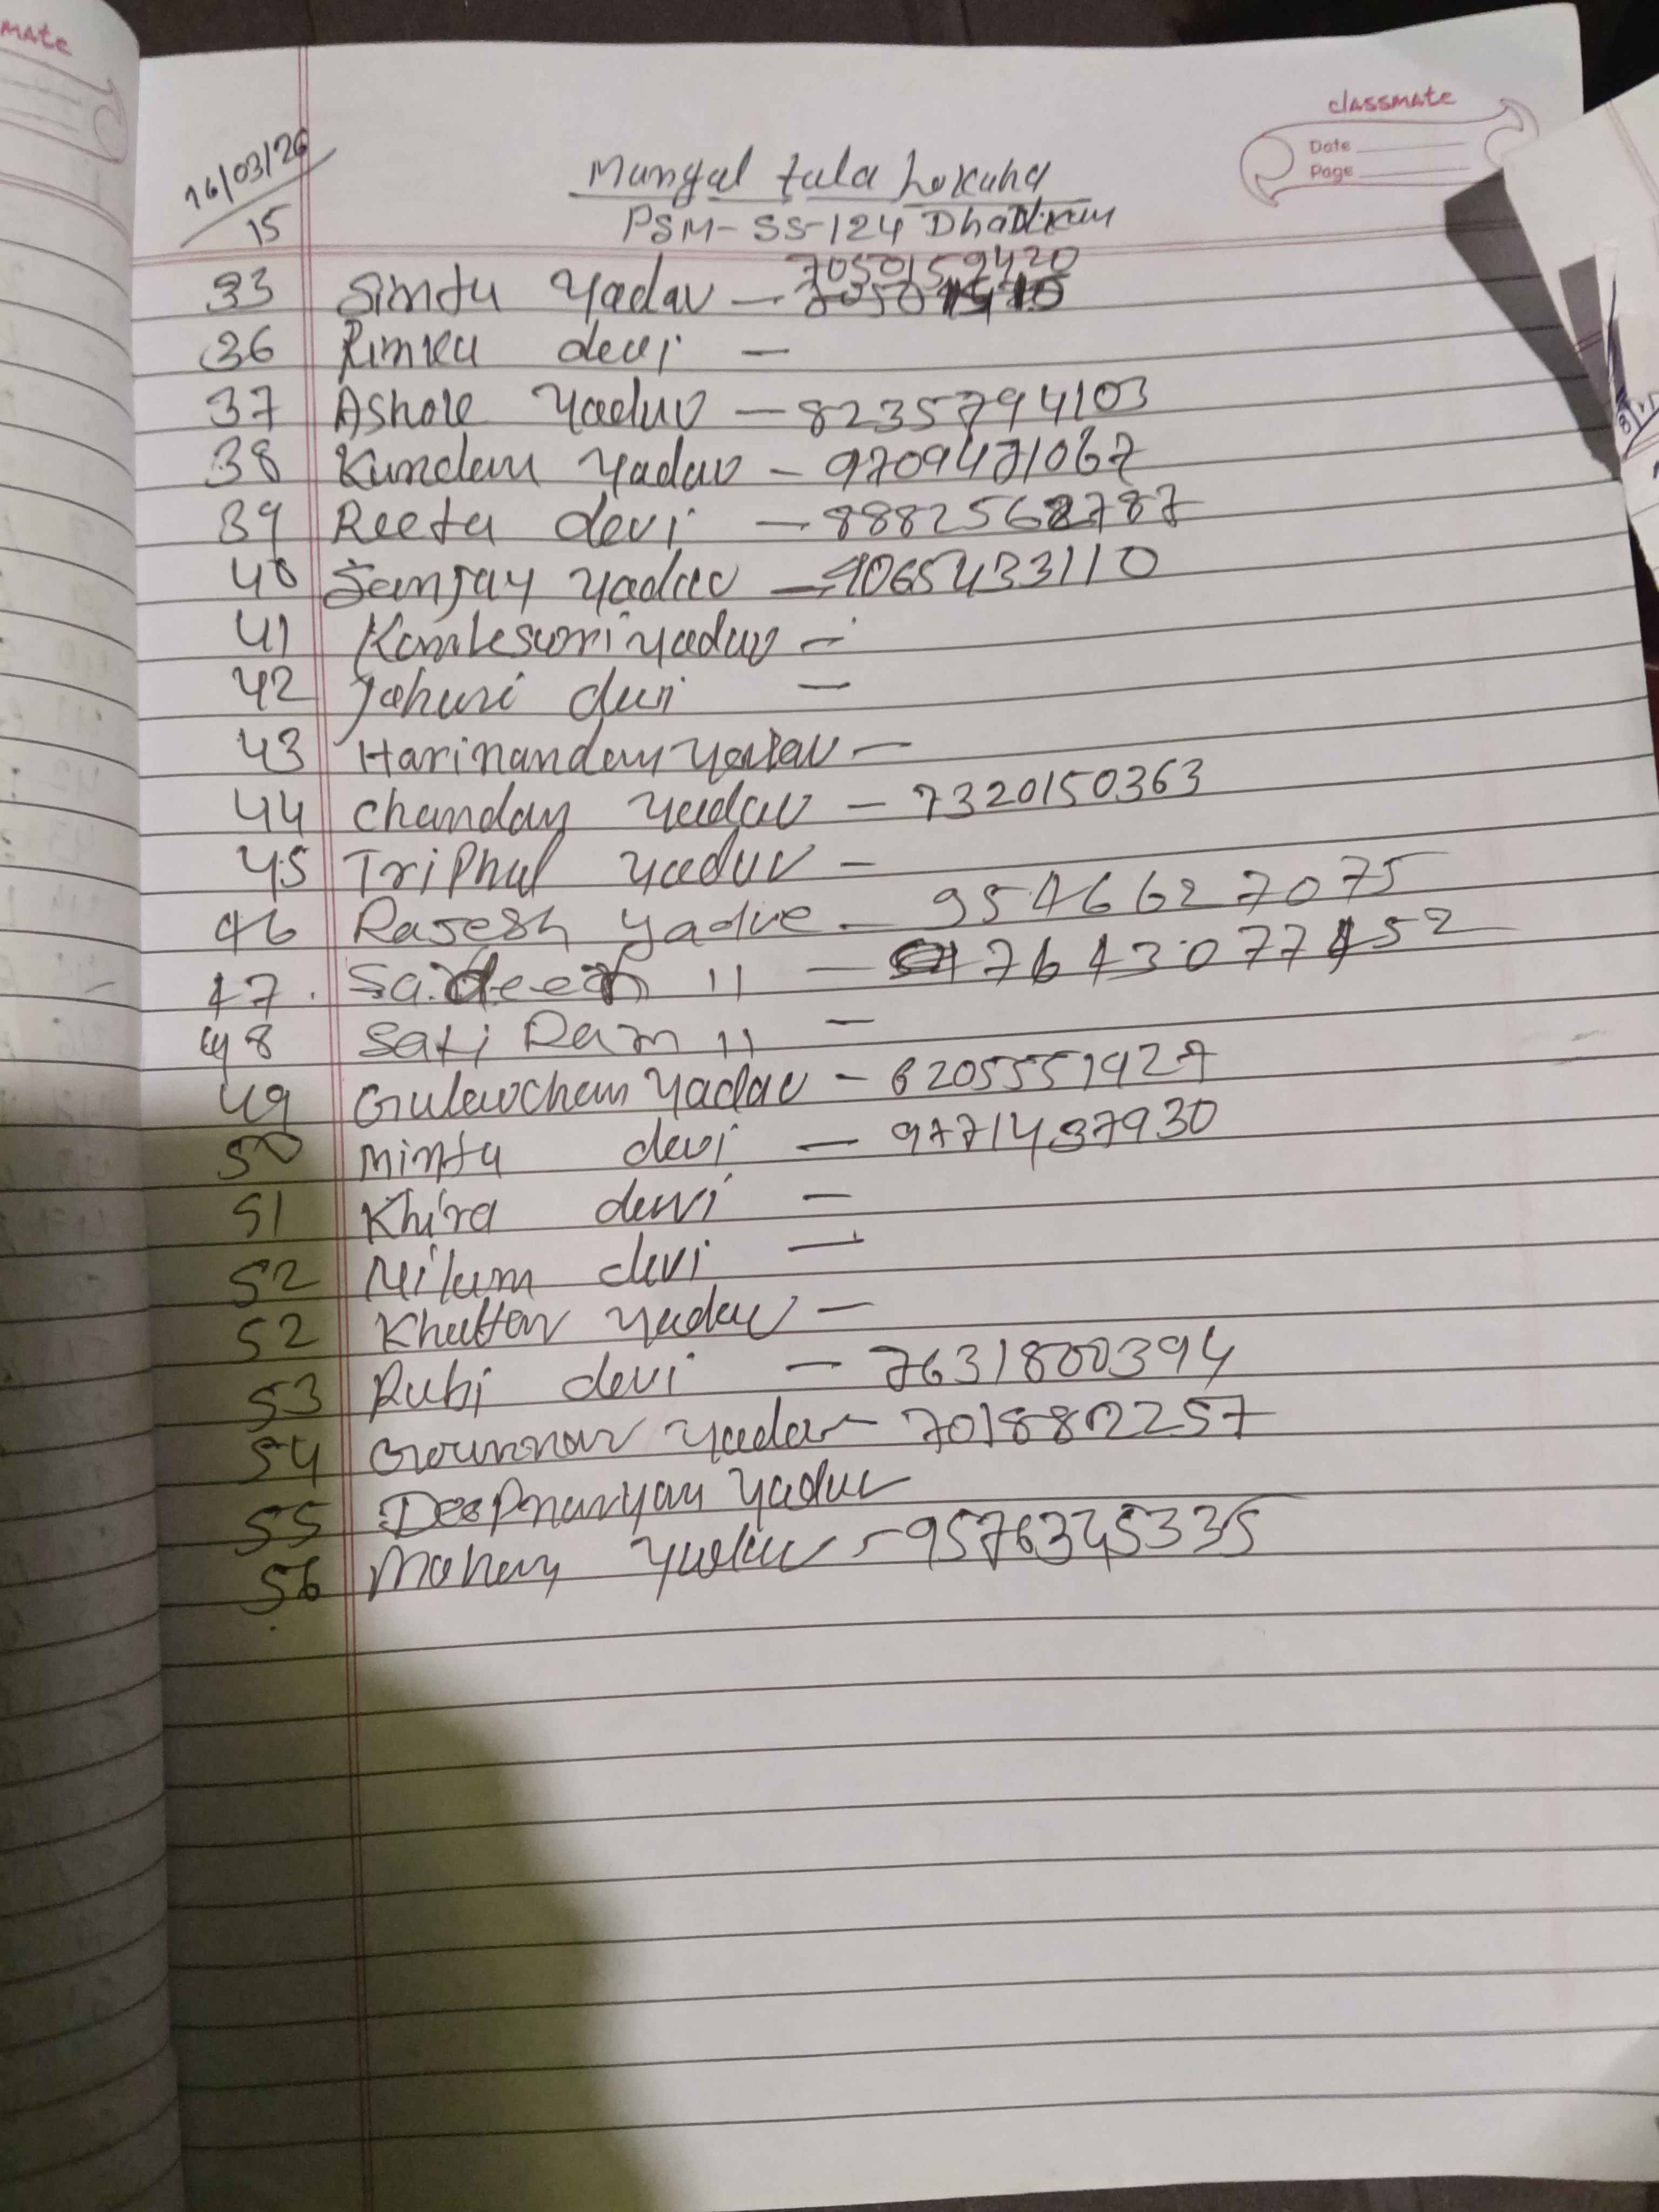 classmate
Date
Page
16/03/26
15
Mangal tala Lokaha
PSM-SS-124
7050159420
33 Sintu Yadav -
36 Rinku devi -
37 Ashok Yadav - 8235794103
38 Kundan Yadav - 9709471067
39 Reeta devi - 8882562787
40 Sanjay Yadav - 9065433110
41 Kamleswri Yadav -
42 Jahuri devi -
43 Harinandan Yadav -
44 Chandan Yadav - 7320150363
45 Triphul Yadav -
46 Rajesh Yadve - 9546627075
47. 11 - 7643077452
48 Sati Ram 11 -
49 Gulawchan Yadav - 6205551927
50 Mintu devi - 9771437930
51 Khira devi -
52 Nilam devi -
52 Khattar Yadav -
53 Rubi devi - 7631800394
54 Yadav - 7018802257
55 Deepnaryan Yadav
56 Mohan Yadav - 9576345335